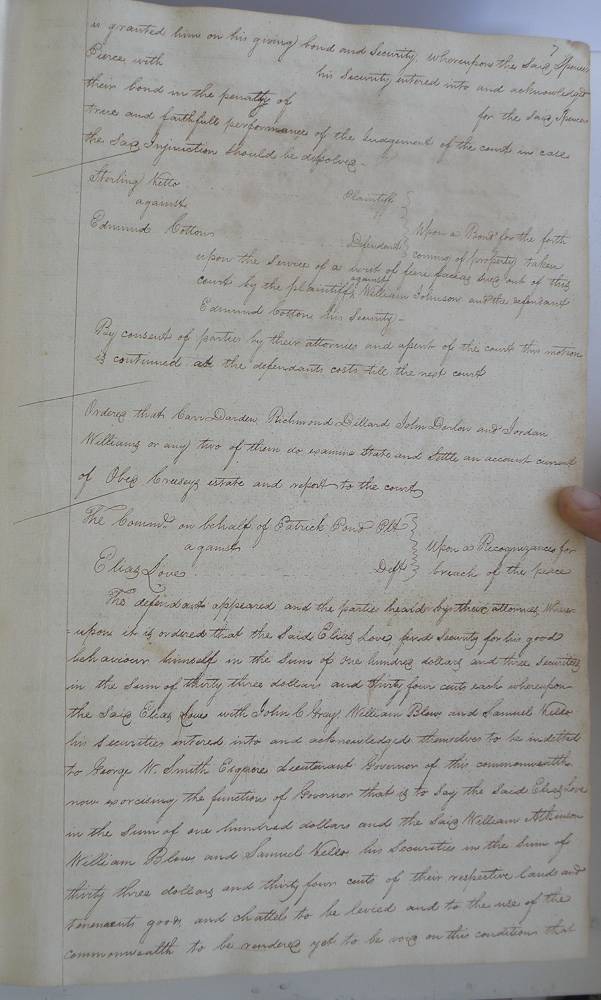 7
is granted him on his giving bond and Security, whereupon the Said Spencer
Pierce with his Security entered into and acknowledged
their bond in the penalty of for the Said Spencers
true and faithfull performance of the Judgement of the court in case
the Said Injunction should be dissolved -
Sterling Kello Plaintiff
against
Edmund Cotton Defendant
Upon a Bond for the forth
coming of property taken
upon the Service of a writ of fiere facias sued out of this
court by the plaintiff against William Johnson and the defendant
Edmund Cotton his Security -
By consent of parties by their attornies and assent of the court this motion
is continued at the defendants costs till the next court
Ordered that Carr Darden, Richmond Dillard John Denton and Jordan
Williams or any two of them do examine state and Settle an account current
of Obed estate and report to the court
The Commo. on behalf of Patrick Pond Plt
against
Elias Love Deft
Upon a Recognizance for
breach of the peace
The defendant appeared and the parties heard by their attornies, Where=
=upon it is ordered that the Said Elias Love find Security for his good
behaviour himself in the Sum of One hundred dollars and three Securities
in the Sum of thirty three dollars and thirty four cents each whereupon
the Said Elias Love with John C Gray William Blow and Samuel Kello
his Securities entered into and acknowledged themselves to be indetted
to George W. Smith Esquire Lieutenant Governor of this commonwealth
now exorcising the functions of Governor that is to Say the Said Elias Love
in the Sum of one hundred dollars and the Said William Atkinson
William Blow and Samuel Kello his Securities in the Sum of
thirty three dollars and thirty four cents of their respective lands and
tenements goods and chattels to be levied and to the use of the
commonwealth to be rendered yet to be void on this condition that